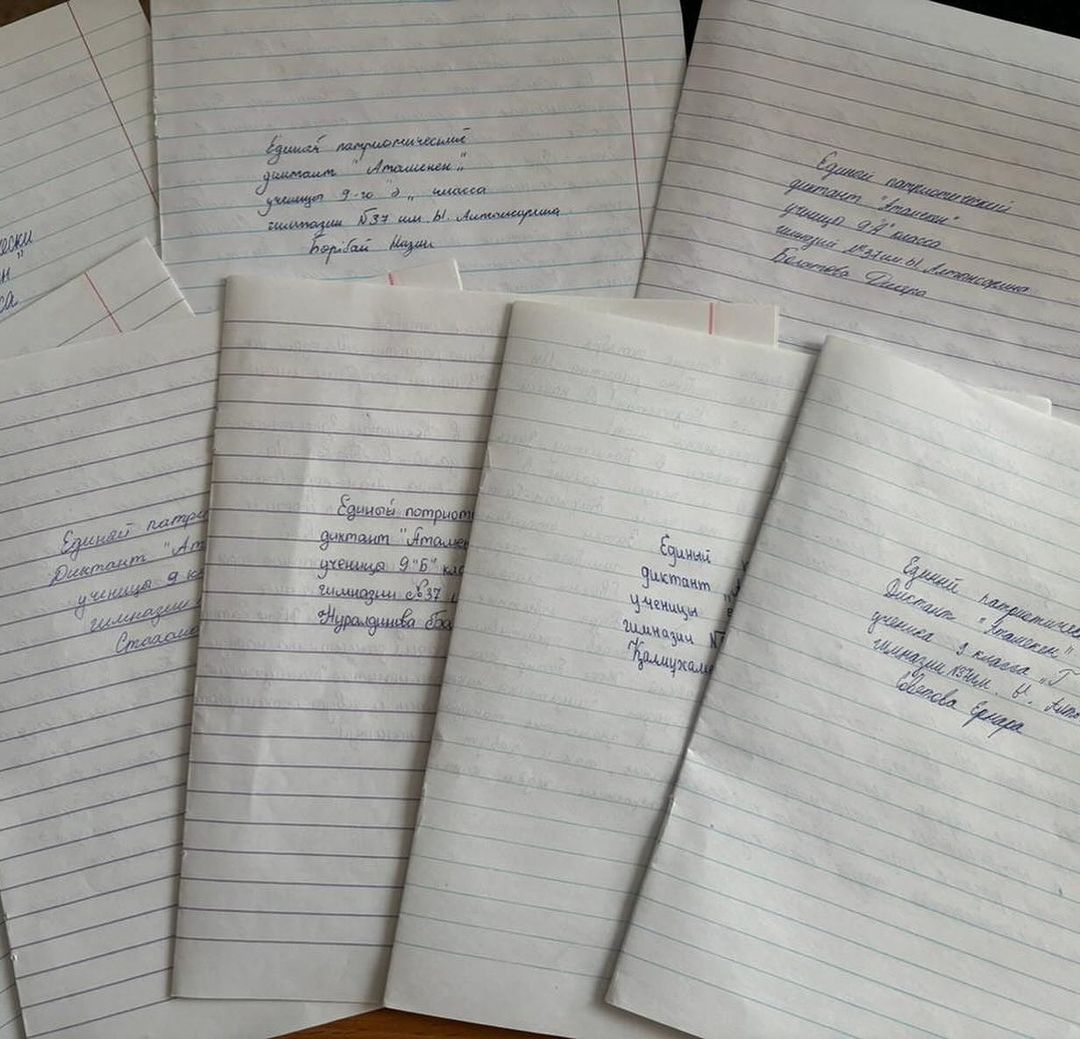 Единый патриотический
диктант "Атамекен"
ученицы 9-го "д" класса
гимназии №37 им. Ы. Алтынсарина
Бөрібай Назии
Единый патриотический
диктант "Атамекен"
ученицы 9 "А" класса
гимназии №37 им Ы. Алтынсарина
Болатова
ески
н"
са
Единый патри
Диктант "Ат
ученицы 9 к
гимназии
Единый потриот
диктант "Атамек
ученицы 9 "Б" кла
гимназии №37
Нуралдинова
Единый
диктант
ученицы
гимназии №
Қалмұхам
Единый патриотичес
Диктант "Атамекен"
ученика 9 класса "Г
гимназии №37 им. Ы. Алты
Ернара